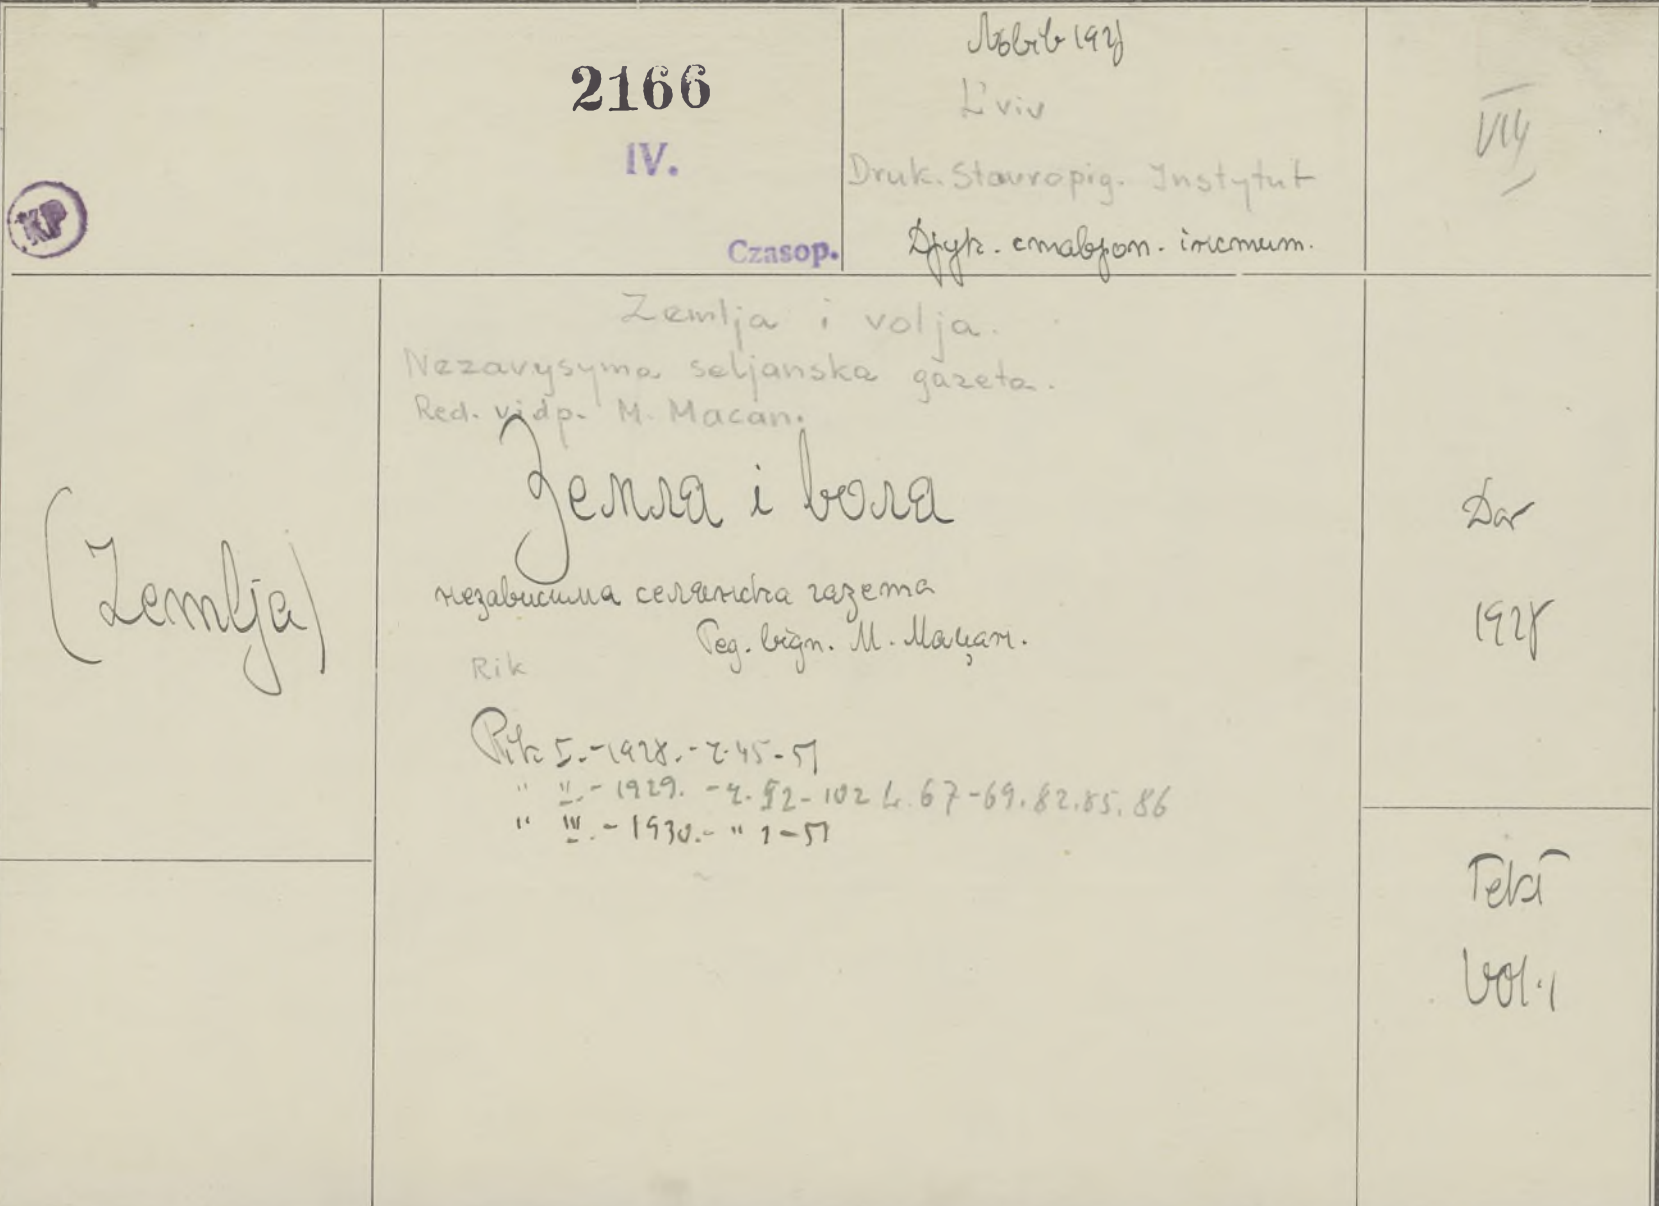 2166
IV.
Czasop.
KP
Львів 1928
L'viv
Druk. Stavropig. Instytut
Друк. ставроп. інстит.
VIII
Zemlja i volja.
Nezavysyma seljanska gazeta.
Red. vidp. M. Macan.
(Zemlja)
Земля і воля
независима селянска газета
Ред. відп. М. Мацан.
Rik
Рік I.-1928.-ч.45-51
" II.-1929.-ч.52-102 b.67-69.82.85.86
" III.-1930.-" 1-51
Dar
1928
Tekt
Vol.1